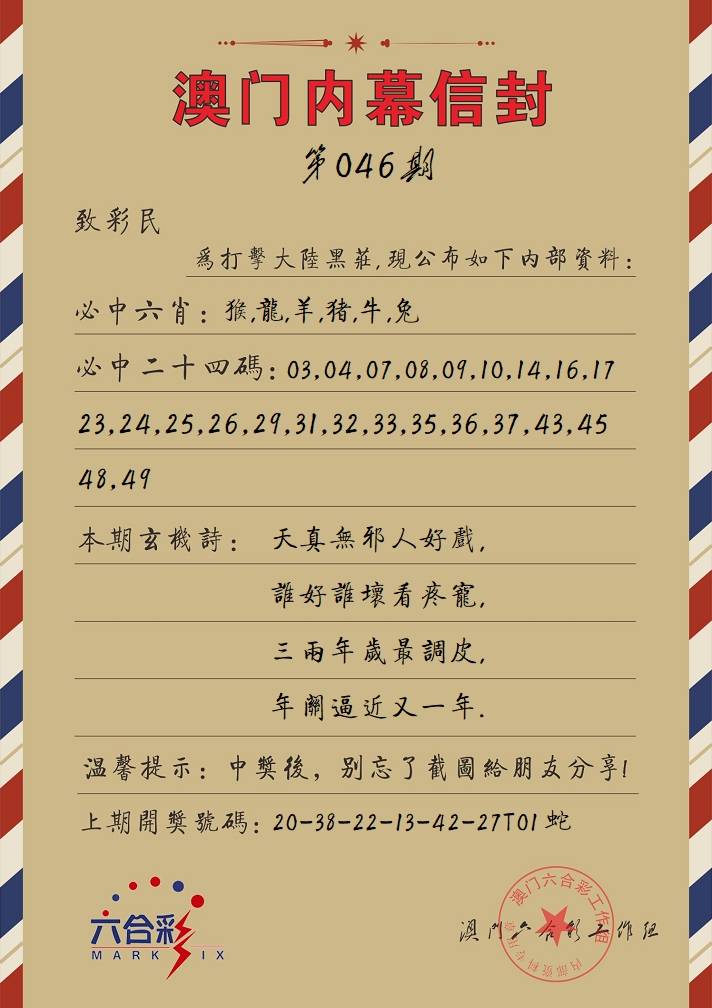 澳门内幕信封
第046期
致彩民
爲打擊大陸黑莊,現公布如下内部資料:
必中六肖: 猴,龍,羊,猪,牛,兔
必中二十四碼: 03,04,07,08,09,10,14,16,17
23,24,25,26,29,31,32,33,35,36,37,43,45
48,49
本期玄機詩: 天真無邪人好戲,
誰好誰壞看疼寵,
三兩年歲最調皮,
年關逼近又一年.
温馨提示: 中獎後, 别忘了截圖給朋友分享!
上期開獎號碼: 20-38-22-13-42-27T01 蛇
六合彩
MARK SIX
澳门六合彩工作组
澳门六合彩工作组
内部资料专用章